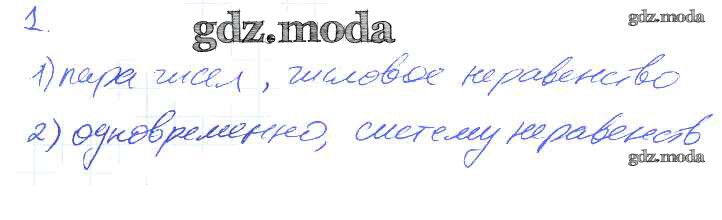 1.
gdz.moda
gdz.moda
1) пара чисел, числовое неравенство
2) одновременно, систему неравенств
gdz.moda